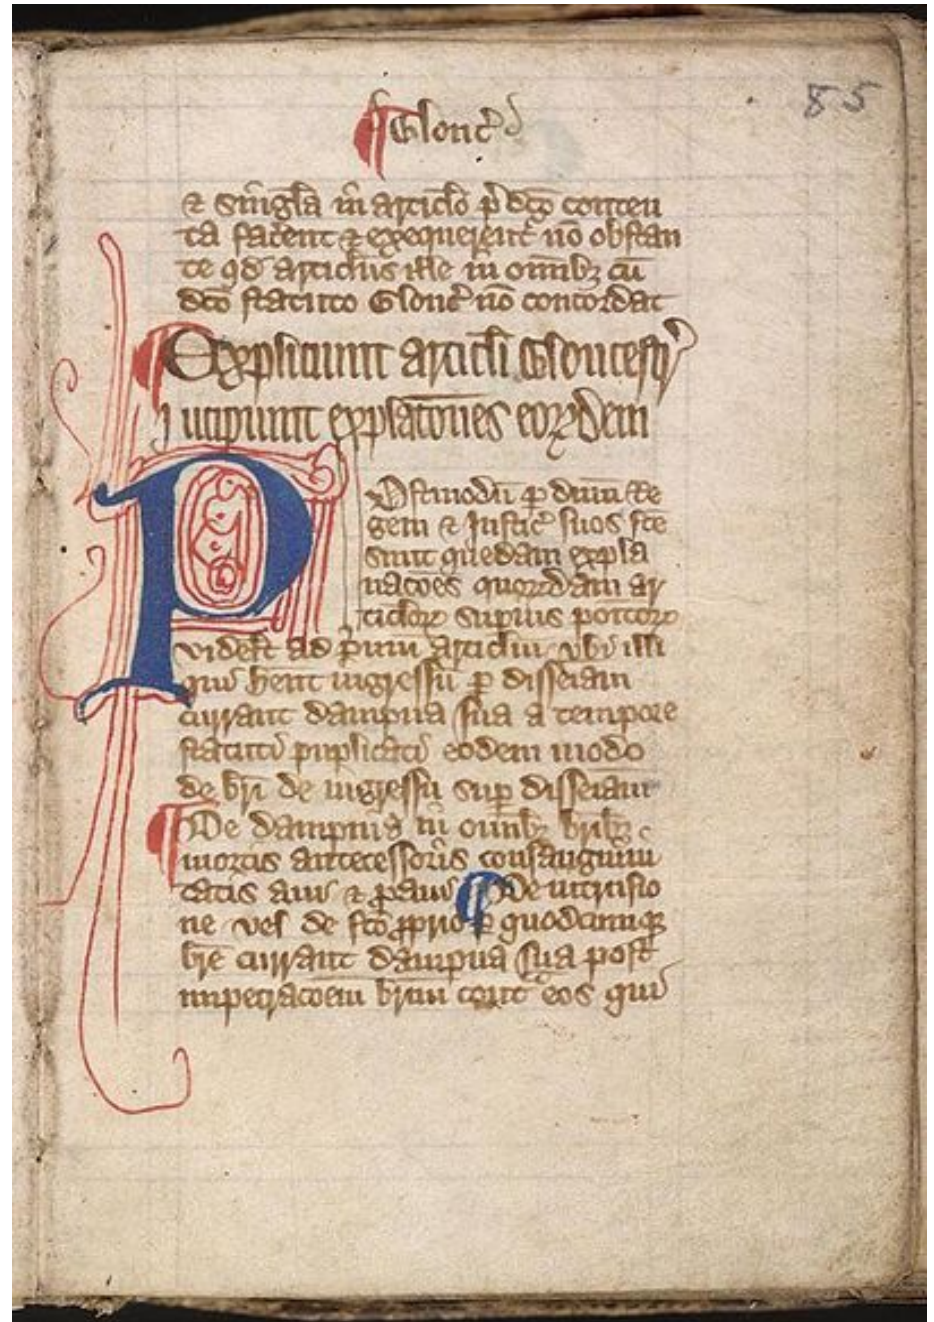 85
Glouc̃
⁊ singl̃a in articl̃o p̃dc̃o conten
ta facent ⁊ exequerent̃ nõ obstan
te qd̃ articlus ille in om̃ibꝫ cũ
dc̃o statuto Glouc̃ nõ concordat
Expliciunt articl̃i Gloucestr̃
Incipiunt explac̃ones eorꝝdem
Postmodũ ꝑ dñm Re
gem ⁊ Justic̃ suos fc̃e
sunt quedam expla
nac̃oes quorꝝdam ar
ticl̃orꝝ supius poitorꝝ
videlꝫ ad p̃mũ articl̃m vbi illi
qui hent ingressũ ꝑ disseiam
currant dampna sua a tempore
statuti puplicati eodem modo
de br̃i de ingressu sup disseiam
De dampnis in om̃ibꝫ br̃ibꝫ
mortis antecessoris consanguini
tatis aui ⁊ ꝓaui De intrusio
ne vel de fc̃o ꝓprio ꝑ quodcumqꝫ
br̃e currant dampna sua post
impetrac̃oem br̃ium cont̃ eos qui